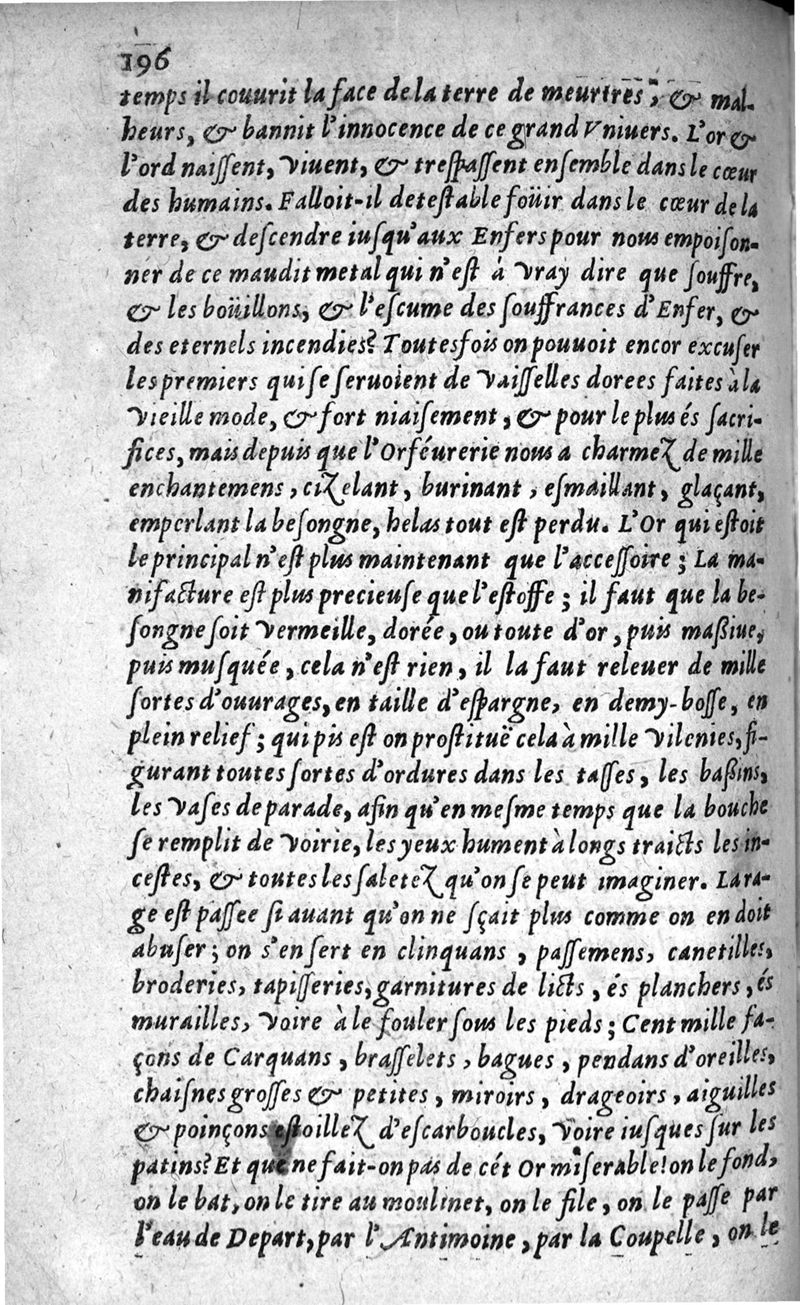 196
temps il couurit la face de la terre de meurtres, & mal-
heurs, & bannit l'innocence de ce grand Vniuers. L'or &
l'ord naiſſent, viuent, & treſpaſſent enſemble dans le cœur
des humains. Falloit-il deteſtable foüir dans le cœur de la
terre, & deſcendre iuſqu'aux Enfers pour nous empoiſon-
ner de ce maudit metal qui n'eſt à vray dire que ſouffre,
& les boüillons, & l'eſcume des ſouffrances d'Enfer, &
des eternels incendies? Toutesfois on pouuoit encor excuſer
les premiers qui ſe ſeruoient de vaiſſelles dorees faites à la
vieille mode, & fort niaiſement, & pour le plus és ſacri-
fices, mais depuis que l'Orféurerie nous a charmez de mille
enchantemens, cizelant, burinant, eſmaillant, glaçant,
emperlant la beſongne, helas tout eſt perdu. L'Or qui eſtoit
le principal n'eſt plus maintenant que l'acceſſoire; La ma-
nifacture eſt plus precieuſe que l'eſtoffe; il faut que la be-
ſongne ſoit vermeille, dorée, ou toute d'or, puis maßiue,
puis muſquée, cela n'eſt rien, il la faut releuer de mille
ſortes d'ouurages, en taille d'eſpargne, en demy-boſſe, en
plein relief; qui pis eſt on proſtituë cela à mille vilenies, fi-
gurant toutes ſortes d'ordures dans les taſſes, les baßins,
les vaſes de parade, afin qu'en meſme temps que la bouche
ſe remplit de voirie, les yeux hument à longs traicts les in-
ceſtes, & toutes les ſaletez qu'on ſe peut imaginer. La ra-
ge eſt paſſee ſi auant qu'on ne ſçait plus comme on en doit
abuſer; on s'en ſert en clinquans, paſſemens, canetilles,
broderies, tapiſſeries, garnitures de licts, és planchers, és
murailles, voire à le fouler ſous les pieds; Cent mille fa-
çons de Carquans, braſſelets, bagues, pendans d'oreilles,
chaiſnes groſſes & petites, miroirs, drageoirs, aiguilles
& poinçons eſtoillez d'eſcarboucles, voire iuſques ſur les
patins? Et que ne fait-on pas de cét Or miſerable! on le fond,
on le bat, on le tire au moulinet, on le file, on le paſſe par
l'eau de Depart, par l'Antimoine, par la Coupelle, on le